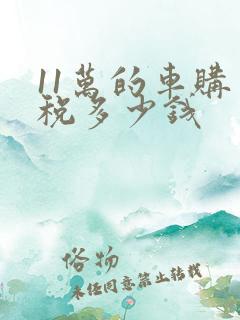 11萬的車購
稅多少錢
俗物
未經同意禁止轉載